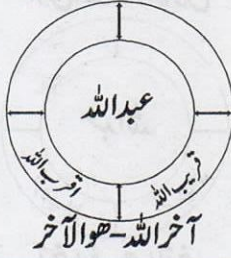 عبداللہ
قریب اللہ
اقرب اللہ
آخر اللہ-ھوالآخر